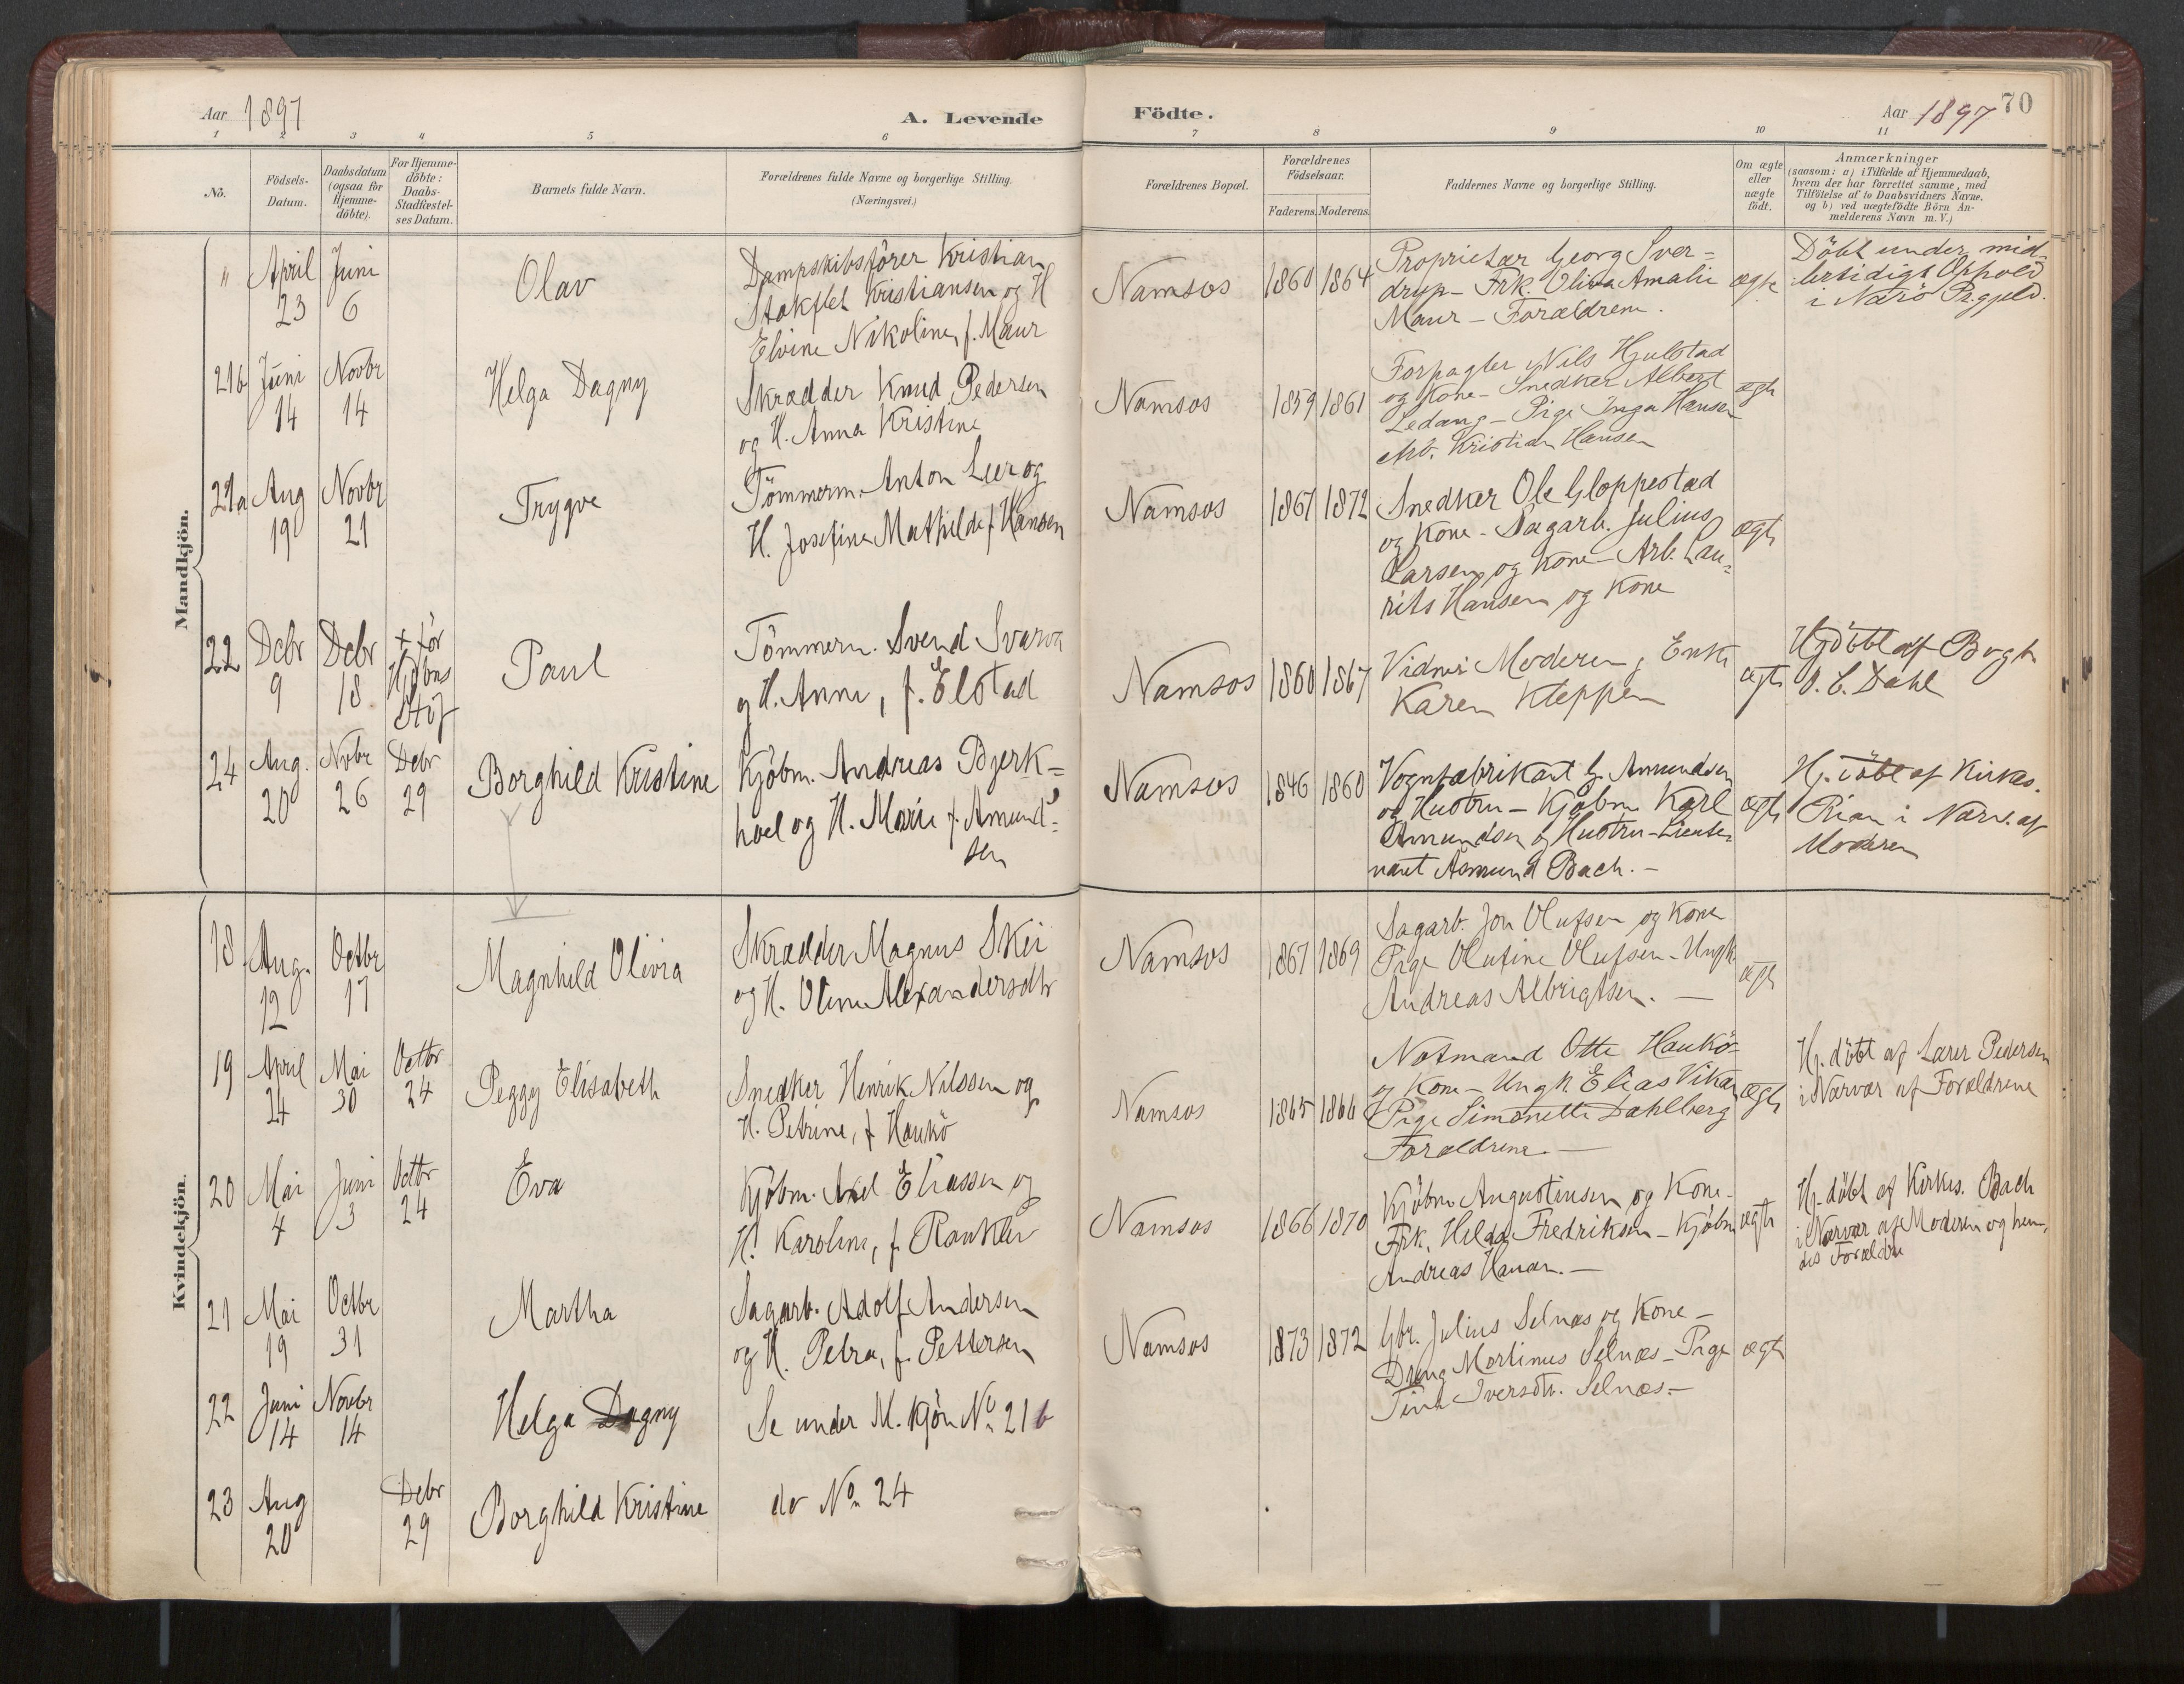 Aar 1897
A. Levende
Födte.
Aar 1897
70
1 2 3 4 5 6 7 8 9 10 11
No.
Födsels-
Datum.
Daabsdatum
(ogsaa for
Hjemme-
döbte).
For Hjemme-
döbte:
Daabs-
Stadfæstel-
ses Datum.
Barnets fulde Navn.
Forældrenes fulde Navne og borgerlige Stilling.
(Næringsvei.)
Forældrenes Bopæl.
Forældrenes
Födselsaar.
Faderens. Moderens.
Faddernes Navne og borgerlige Stilling.
Om ægte
eller
uægte
födt.
Anmærkninger
(saasom: a) i Tilfælde af Hjemmedaab,
hvem der har forrettet samme, med
Tilföielse af to Daabsvidners Navne,
og b) ved uægtefödte Börn An-
melderens Navn m. V.)
Mandkjön.
"
April
23
Juni
6
Olav
Dampskibsförer Kristian
Stokflet Kristiansen og H
Elvine Nikoline, f. Maur
Namsos
1860 1864
Proprietær Georg Sver-
drup - Frk. Oliva Amalie
Maur - Forældrene.
ægte
Döbt under mid-
lertidigt Ophold
i Nærö Pr.gjeld.
21b
Juni
14
Novbr
14
Helga Dagny
Skrædder Knud Pedersen
og H. Anna Kristine
Namsos
1859 1861
Forpagter Nils Hjulstad
og Kone - Snedker Albert
Ledang - Pige Inga Hansen
Arb. Kristian Hansen
ægte
21a
Aug
19
Novbr
21
Trygve
Tömmerm. Anton Lier og
H. Josefine Mathilde f. Hansen
Namsos
1867 1872
Snedker Ole Gloppestad
og Kone - Sagarb. Julius
Larsen og Kone - Arb. Lau-
rits Hansen og Kone
ægte
22
Debr
9
Debr
18
+ för
Stadf
Paul
Tömmerm. Svend Svarva
og H. Anne, f. Elstad
Namsos
1860 1867
Vidner: Moderen, Enke
Karen Kleppen
ægte
Hjdöbt af Bogh.
O. C. Dahl
24
Aug.
20
Novbr
26
Debr
29
Borghild Kristine
Kjöbm. Andreas Bjerk-
hoel og H. Marie f. Amund-
sen
Namsos
1846 1860
Vognfabrikant G. Amundsen
og Hustru - Kjöbm Karl
Amundsen og Hustru - Lieute-
nant Asmund Bach. -
ægte
Hj.döbt af Kirkes.
Rian i Nærv. af
Moderen
Kvindekjön.
18
Aug.
12
Octbr
17
Magnhild Olivia
Skrædder Magnus Skei
og H. Oline Alexandersdtr
Namsos
1867 1869
Sagarb. Jon Olufsen og Kone
Pige Olufine Olufsen - Ungk
Andreas Albrigtsen. -
ægte
19
April
24
Mai
30
Octbr
24
Peggy Elisabeth
Snedker Henrik Nilssen og
H. Petrine, f. Haukö
Namsos
1865 1866
Notmand Otte Haukö
og Kone - Ungk. Elias Vikan
Pige Simonette Dahlberg
Forældrene. -
ægte
Hj. döbt af Lærer Pedersen
i Nærvær af Forældrene
20
Mai
4
Juni
3
Octbr
24
Eva
Kjöbm. Axel Eliassen og
H. Karoline, f. Ranklev
Namsos
1866 1870
Kjöbm Augustinsen og Kone -
Frk. Helda Fredriksen - Kjöbm
Andreas Hanan. -
ægte
Hj. döbt af Kirkes. Bach
i Nærvær af Moderen og hen-
des Forældre
21
Mai
19
Octbr
31
Martha
Sagarb. Adolf Andersen
og H. Petra, f. Pettersen
Namsos
1873 1872
Gbr. Julius Selnæs og Kone -
Dreng Martinus Selnæs - Pige
Tina Iversdtr. Selnæs. -
ægte
22
Juni
14
Novbr
14
Helga Dagny
Se under M. Kjön No. 21b
23
Aug
20
Debr
29
Borghild Kristine
do No. 24